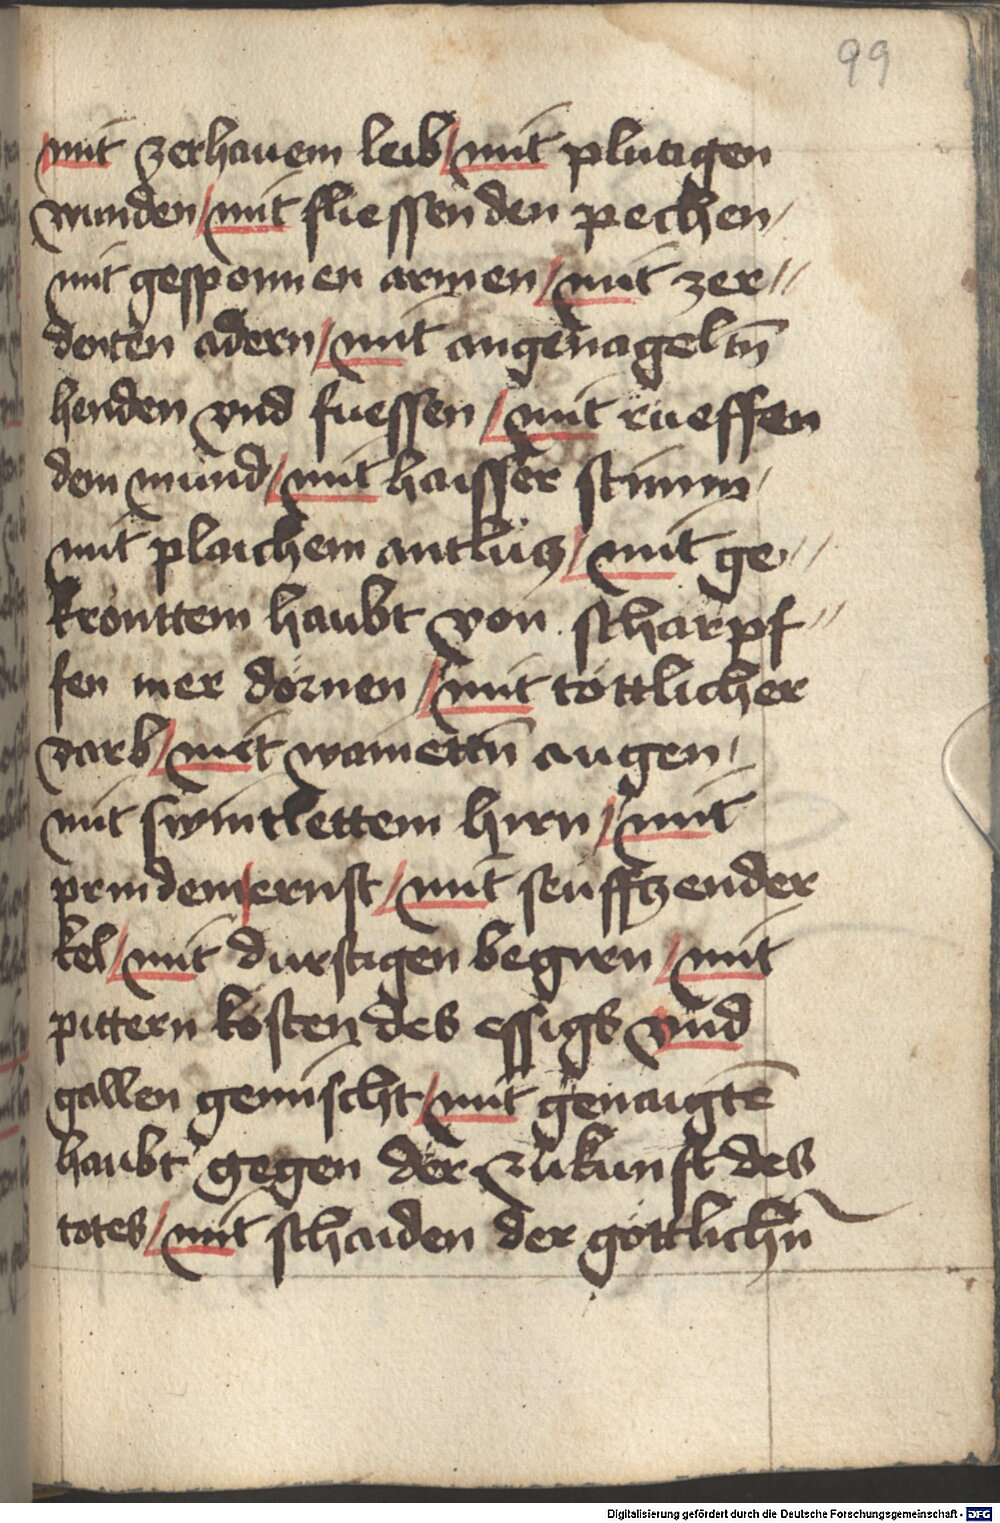 99
mit zerhauem leib / mit plutigen
wunden / mit fliessenden pechen /
mit gesponnen armen / mit zer //
denten adern / mit angenageltn̄
henden vnd fuessen / mit rueffen
dem mund / mit haisser stimm /
mit plaichem antlütz / mit ge //
kronttem haubt von scharpf //
fen mer dornen / mit tottlicher
varb / mit wainettn̄ augen /
mit swintlettem hirn / mit
prindem ernst / mit seuffzender
kel / mit durstigen begiren / mit
pittern kosten des essigs vnd
gallen gemischt / mit genaigtē
haubt gegen der zukunft des
totes / mit schaiden der gottlichn̄
Digitalisierung gefördert durch die Deutsche Forschungsgemeinschaft - DFG